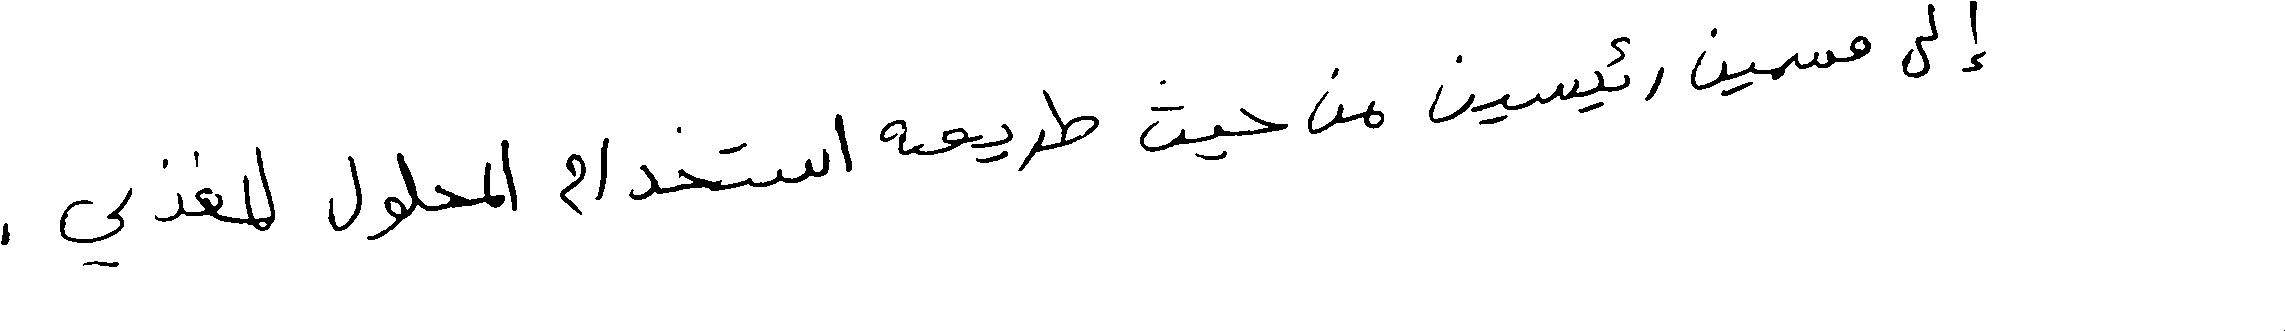 إلى قسمين رئيسين من حيث طريقة استخدام المحلول المغذي .